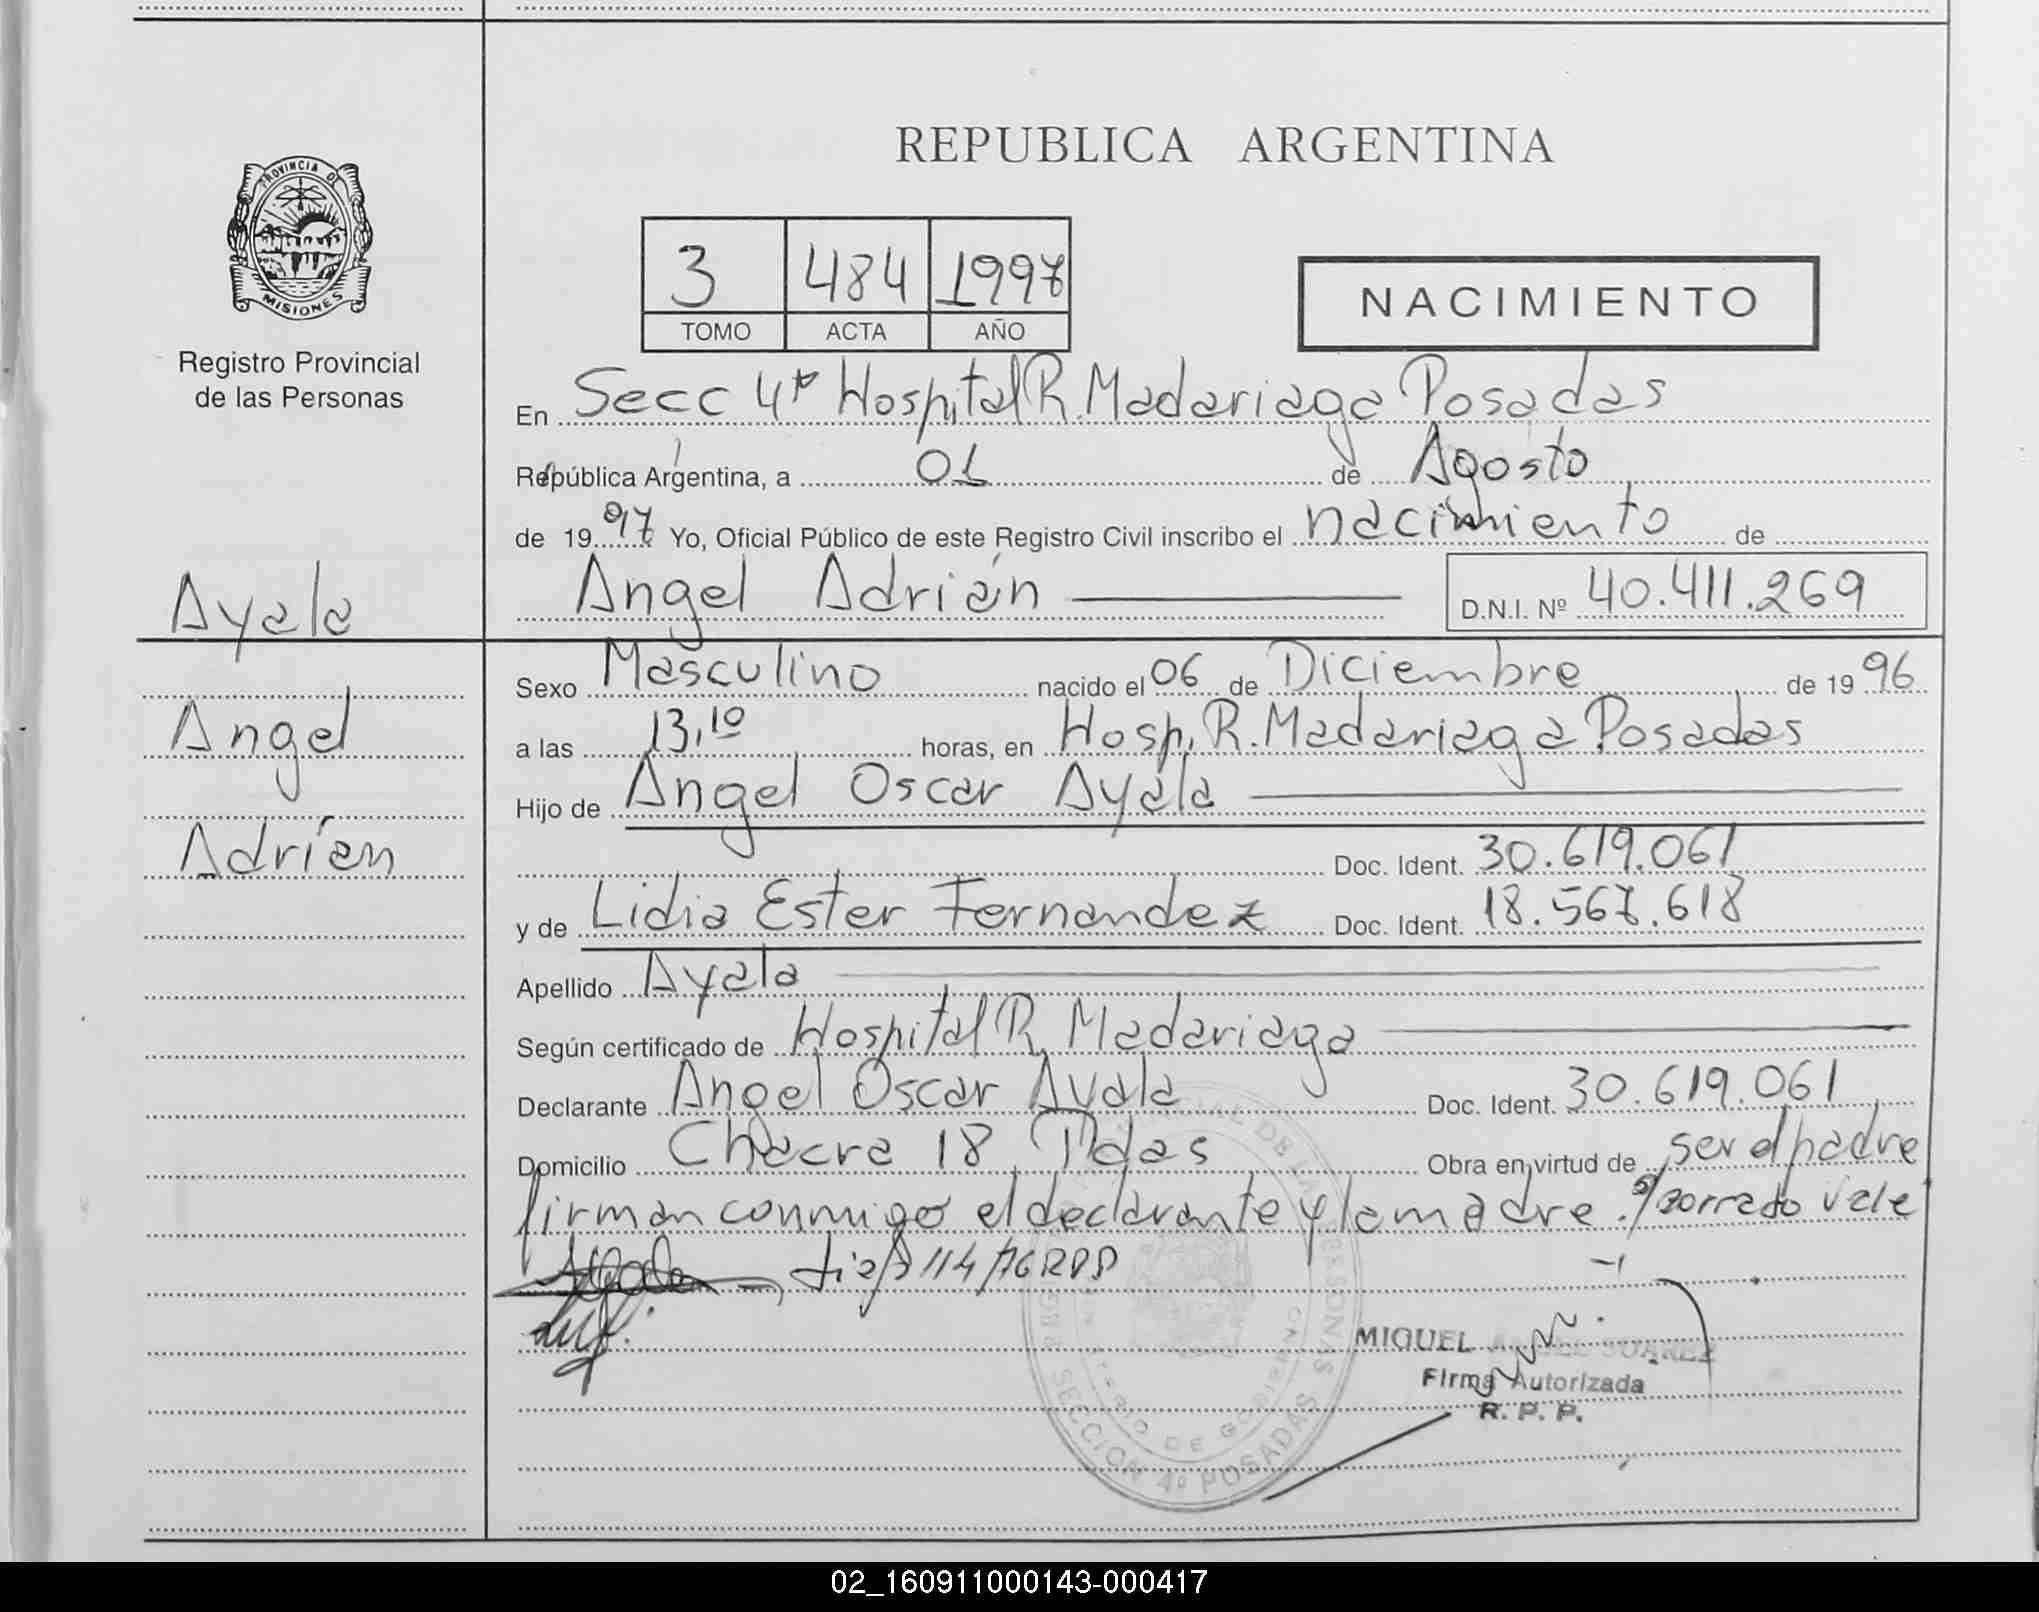 REPUBLICA ARGENTINA
PROVINCIA DE
MISIONES
Registro Provincial
de las Personas
3 484 1997
TOMO ACTA AÑO
NACIMIENTO
En Secc 4ª Hospital R. Madariaga Posadas
República Argentina, a 01 de Agosto
de 1997 Yo, Oficial Público de este Registro Civil inscribo el nacimiento de
Angel Adrián
D.N.I. Nº 40.411.269
Ayala
Angel
Adrían
Sexo Masculino nacido el 06 de Diciembre de 1996
a las 13,10 horas, en Hosp. R. Madariaga Posadas
Hijo de Angel Oscar Ayala
Doc. Ident. 30.619.061
y de Lidia Ester Fernandez Doc. Ident. 18.567.618
Apellido Ayala
Según certificado de Hospital R. Madariaga
Declarante Angel Oscar Ayala Doc. Ident. 30.619.061
Domicilio Chacra 18 Pdas Obra en virtud de ser el padre
firman conmigo el declarante y la madre. s/borrado vale
114/76 RPP
MIGUEL ANGEL SUAREZ
Firma Autorizada
R. P. P.
SECCION 4º POSADAS
02_160911000143-000417